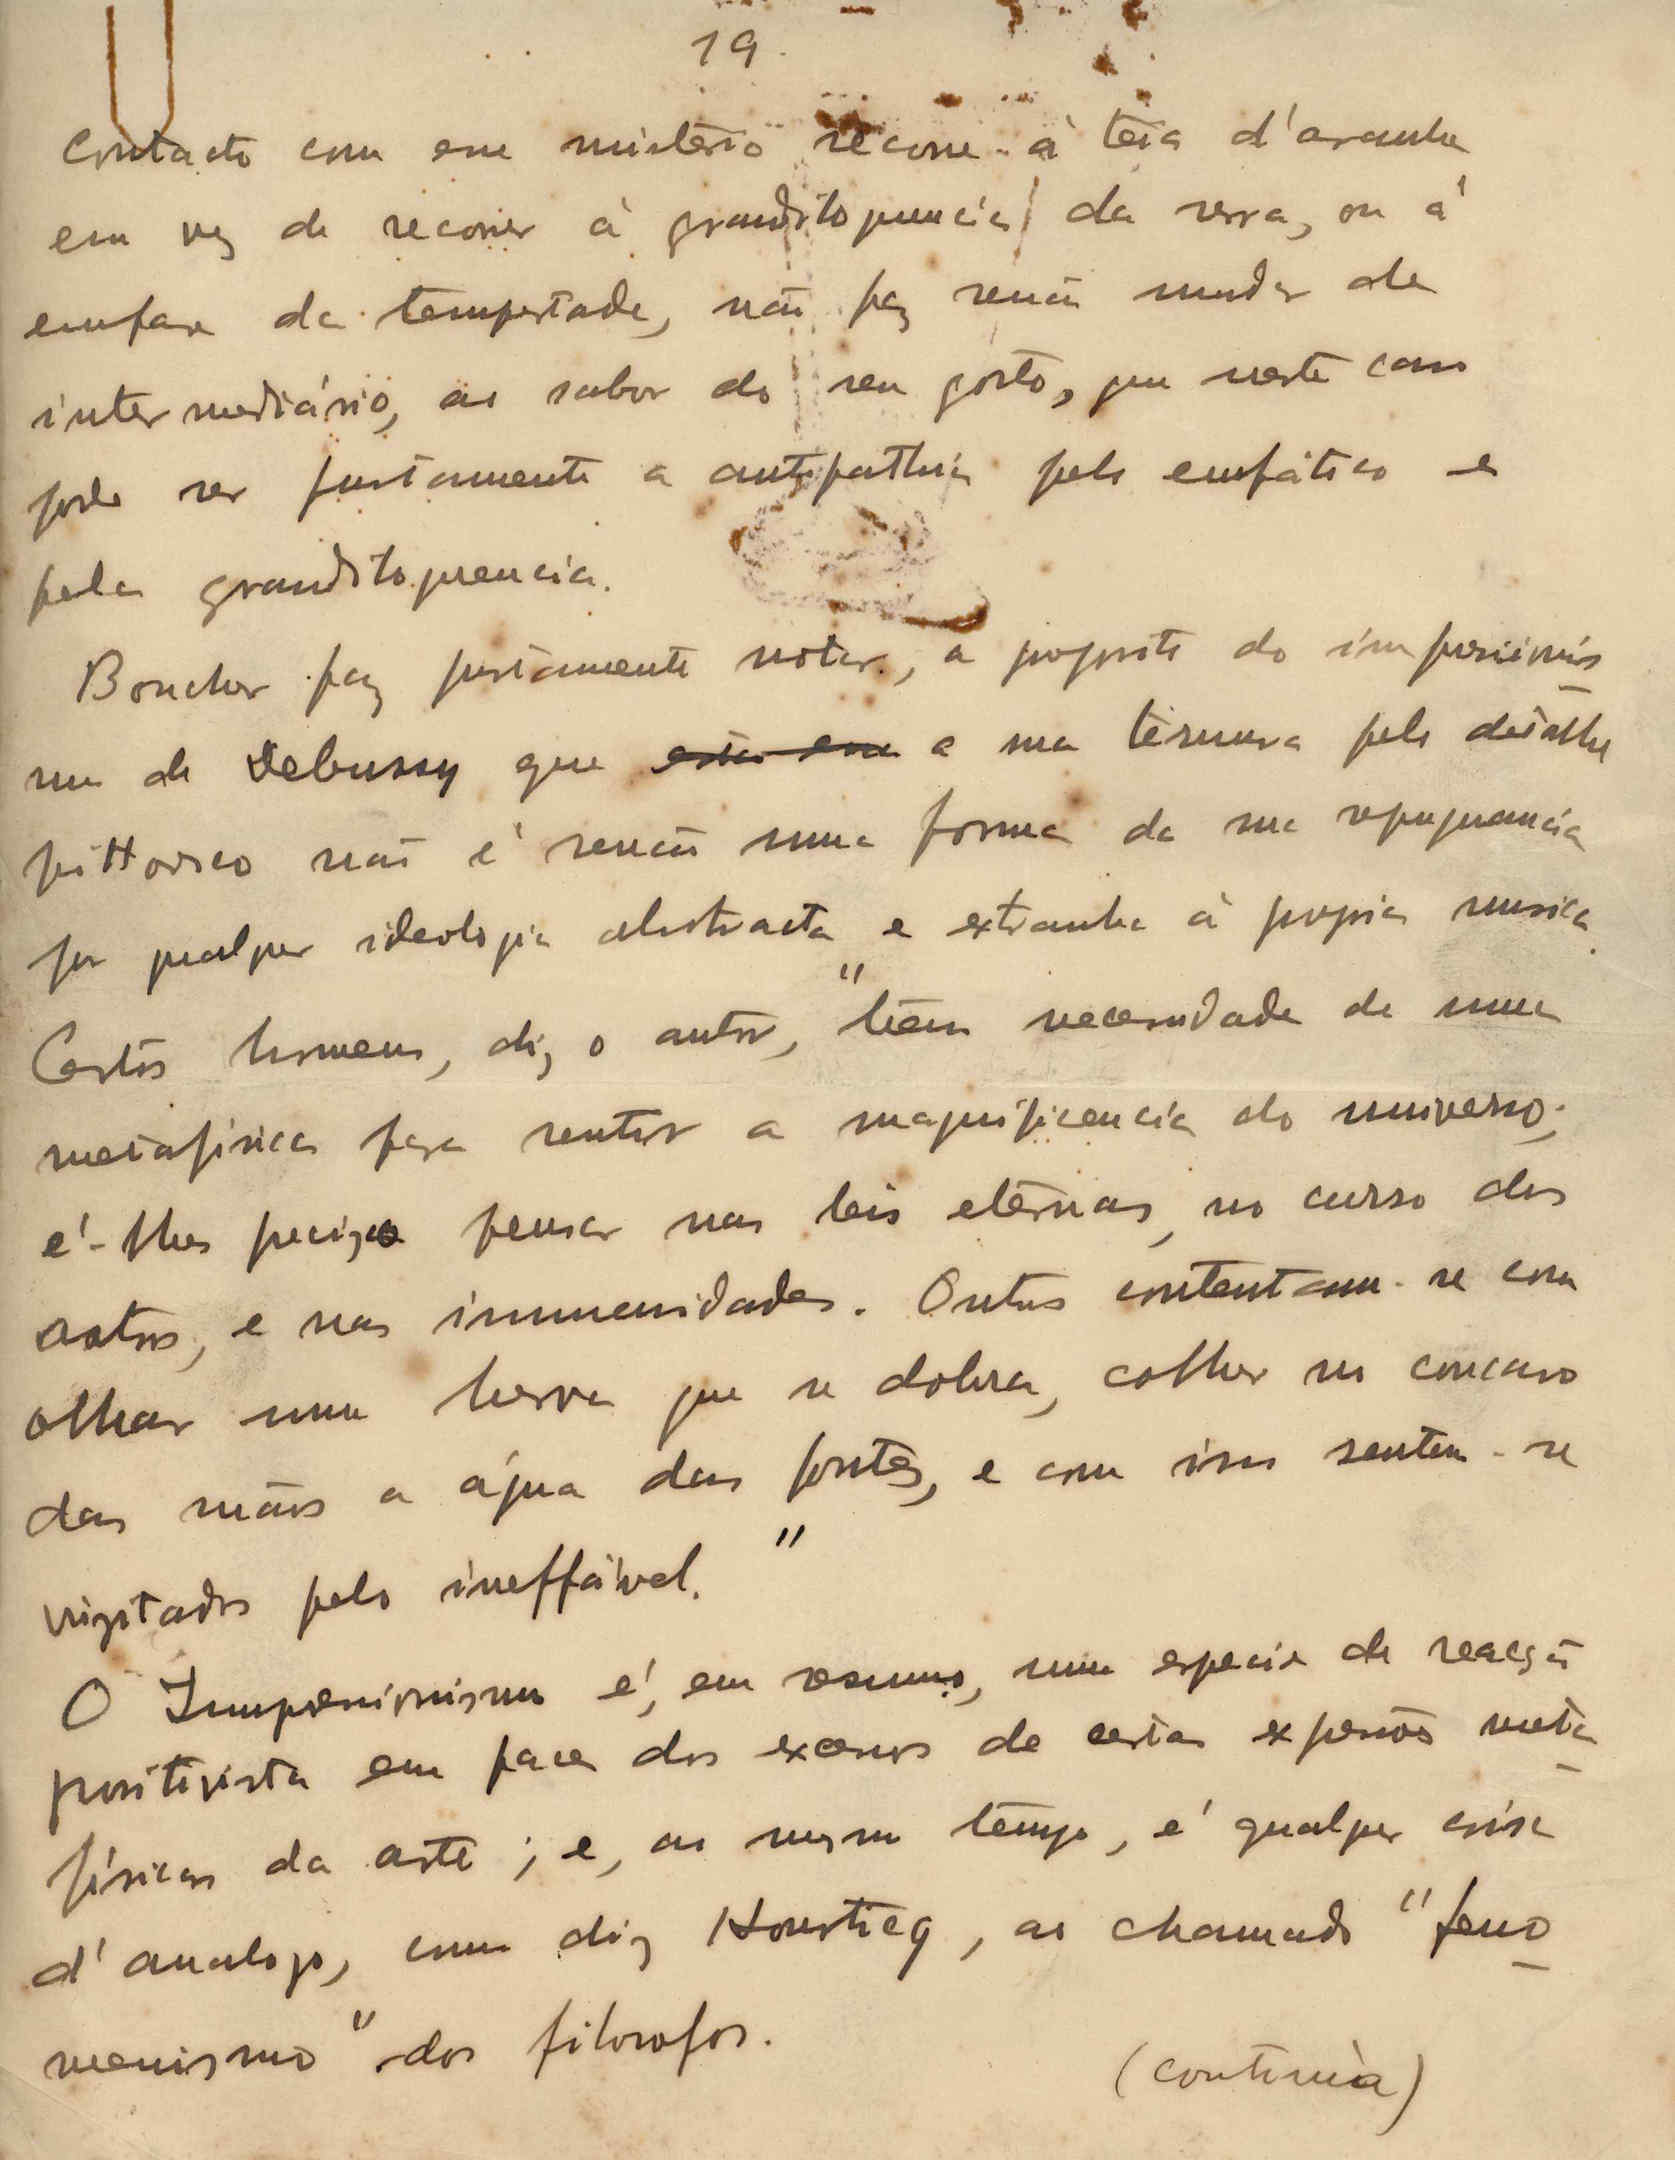 19.
contacto com esse mistério recorre à teia d'aranha
em vez de recorrer à grandiloquencia da serra, ou á
emfase da tempestade, não faz senão mudar de
intermediário, ao sabor do seu gosto, que neste caso
pode ser justamente a antipathia pelo emfático e
pela grandiloquencia.
Boucher faz justamente notar, a proposito do impressionis
mo de Debussy que a sua ternura pelo detalhe
pittoresco não é senão uma forma da sua repugnancia
por qualquer ideologia abstracta e extranha á propria musica.
Certos homens, diz o autor, "têem necessidade de uma
metafísica para sentir a magnificencia do universo;
é-lhes preciso pensar nas leis eternas, no curso dos
astros, e nas immensidades. Outros contentam-se com
olhar uma herva que se dobra, colher no concavo
das mãos a água das fontes, e com isso sentem-se
visitados pelo ineffável."
O Impressionismo é, em resumo, uma especie de reacção
positivista em face dos excessos de certas expressões meta
físicas da arte; e, ao mesmo tempo, é qualquer coisa
d'analogo, como diz Hourticq, ao chamado "feno
menismo" dos filosofos.
(continúa)